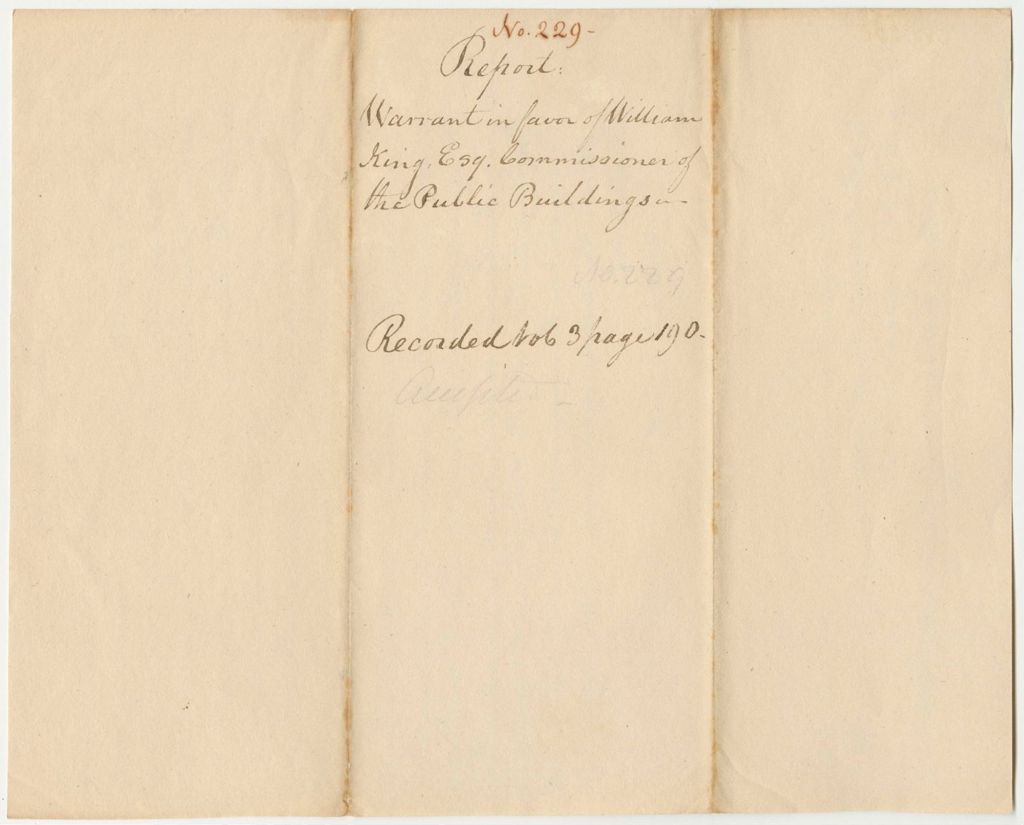 No. 229-
Report:
Warrant in favor of William
King, Esq. Commissioner of
the Public Buildings -
No. 229
Recorded Vol 3 page 190-